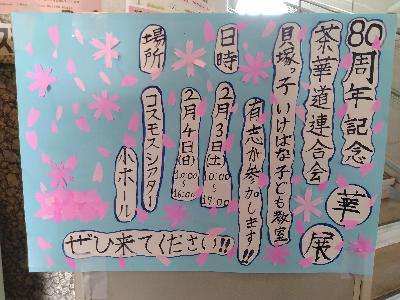 80周年記念
茶華道連合会
華展
貝塚っ子いけばな子ども教室
有志が参加します!!
日時
2月3日(土)10:00~17:00
2月4日(日)10:00~16:00
場所
コスモスシアター
小ホール
ぜひ来てください!!